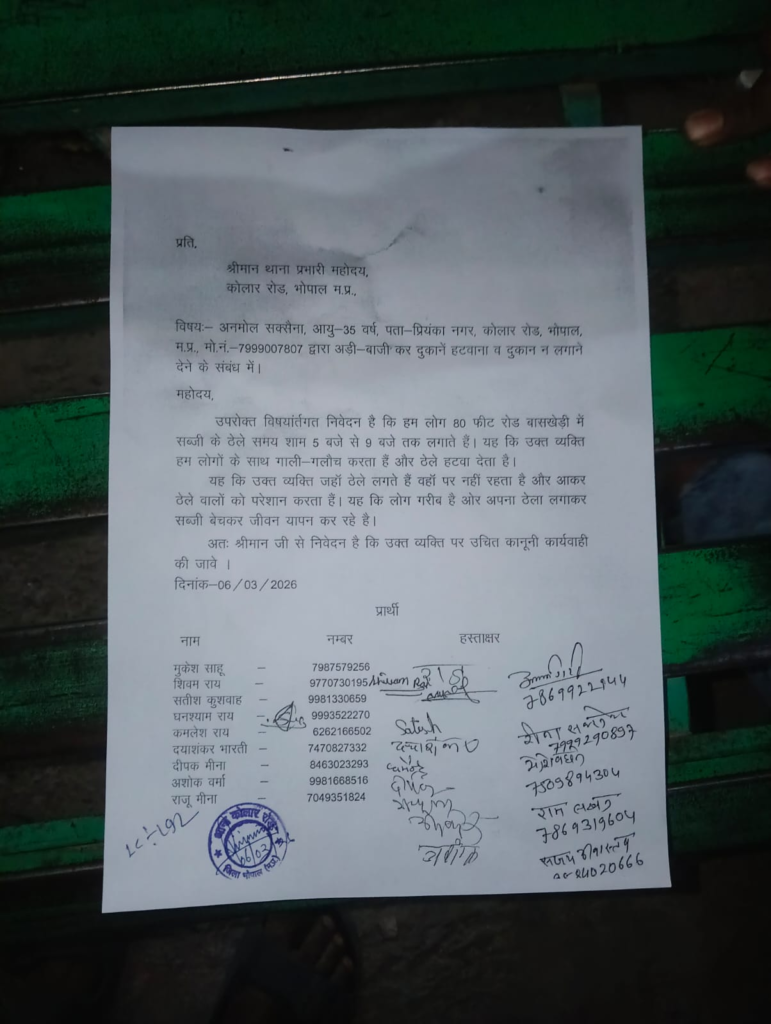 प्रति,
श्रीमान थाना प्रभारी महोदय,
कोलार रोड, भोपाल म.प्र.,
विषयः– अनमोल सक्सैना, आयु–35 वर्ष, पता–प्रियंका नगर, कोलार रोड, भोपाल,
म.प्र., मो.नं.–7999007807 द्वारा अड़ी–बाजी कर दुकानें हटवाना व दुकान न लगाने
देने के संबंध में।
महोदय,
उपरोक्त विषयांर्तगत निवेदन है कि हम लोग 80 फीट रोड बासखेड़ी में
सब्जी के ठेले समय शाम 5 बजे से 9 बजे तक लगाते हैं। यह कि उक्त व्यक्ति
हम लोगों के साथ गाली–गलौच करता हैं और ठेले हटवा देता है।
यह कि उक्त व्यक्ति जहॉ ठेले लगते हैं वहॉ पर नहीं रहता है और आकर
ठेले वालों को परेशान करता हैं। यह कि लोग गरीब है ओर अपना ठेला लगाकर
सब्जी बेचकर जीवन यापन कर रहे है।
अतः श्रीमान जी से निवेदन है कि उक्त व्यक्ति पर उचित कानूनी कार्यवाही
की जावे ।
दिनांक–06/03/2026
प्रार्थी
नाम नम्बर हस्ताक्षर
मुकेश साहू – 7987579256
शिवम राय – 9770730195 Shivam Rai
सतीश कुशवाह – 9981330659
घनश्याम राय – 9993522270
कमलेश राय – 6262166502 Satish
दयाशंकर भारती – 7470827332
दीपक मीना – 8463023293
अशोक वर्मा – 9981668516
राजू मीना – 7049351824
7869922944
7979290897
7509894304
राम लखन
7869319604
संजय श्रीवास्तव
24020666
थाना कोलार रोड
06/03
जिला भोपाल (म.प्र.)